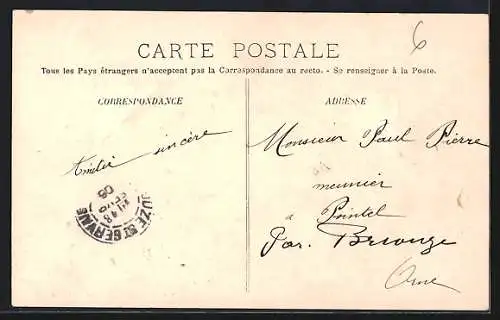 6
CARTE POSTALE
Tous les Pays étrangers n'acceptent pas la Correspondance au recto. - Se renseigner à la Poste.
CORRESPONDANCE
ADRESSE
Amitié sincère
Monsieur Paul Pierre
meunier
à Pointel
Par. Briouze
Orne
ST GERVAIS